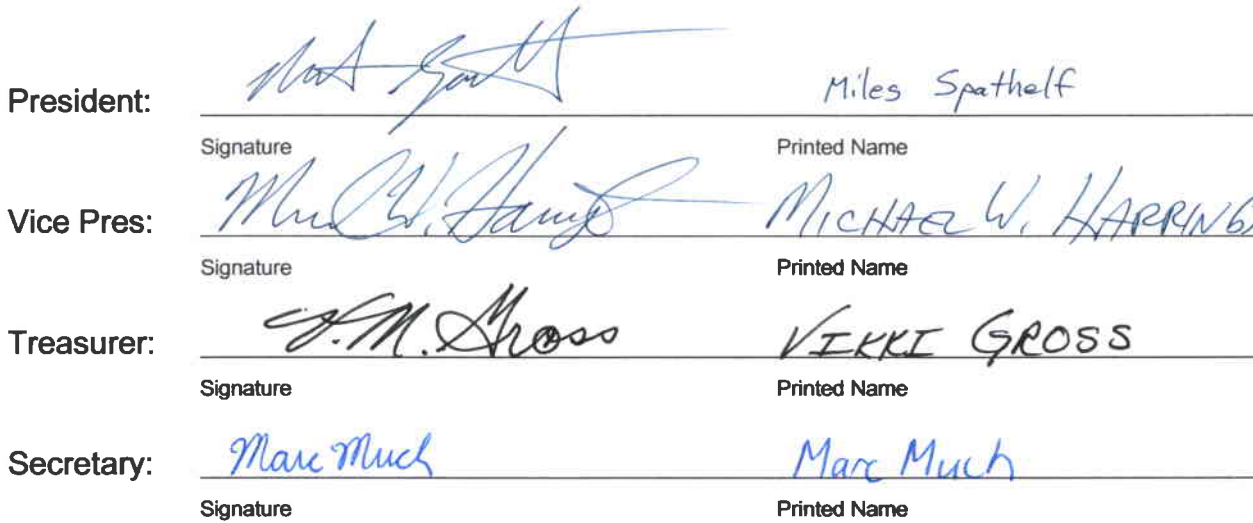 President: Miles Spathelf
Signature Printed Name
Vice Pres: Mich W. Harringt MICHAEL W. HARRINGT
Signature Printed Name
Treasurer: V.M. Gross VIKKI GROSS
Signature Printed Name
Secretary: Marc Much Marc Much
Signature Printed Name